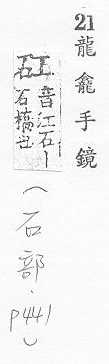 21 龍龕手鏡
矼 音江石丨
石橋也
(石部.p441)